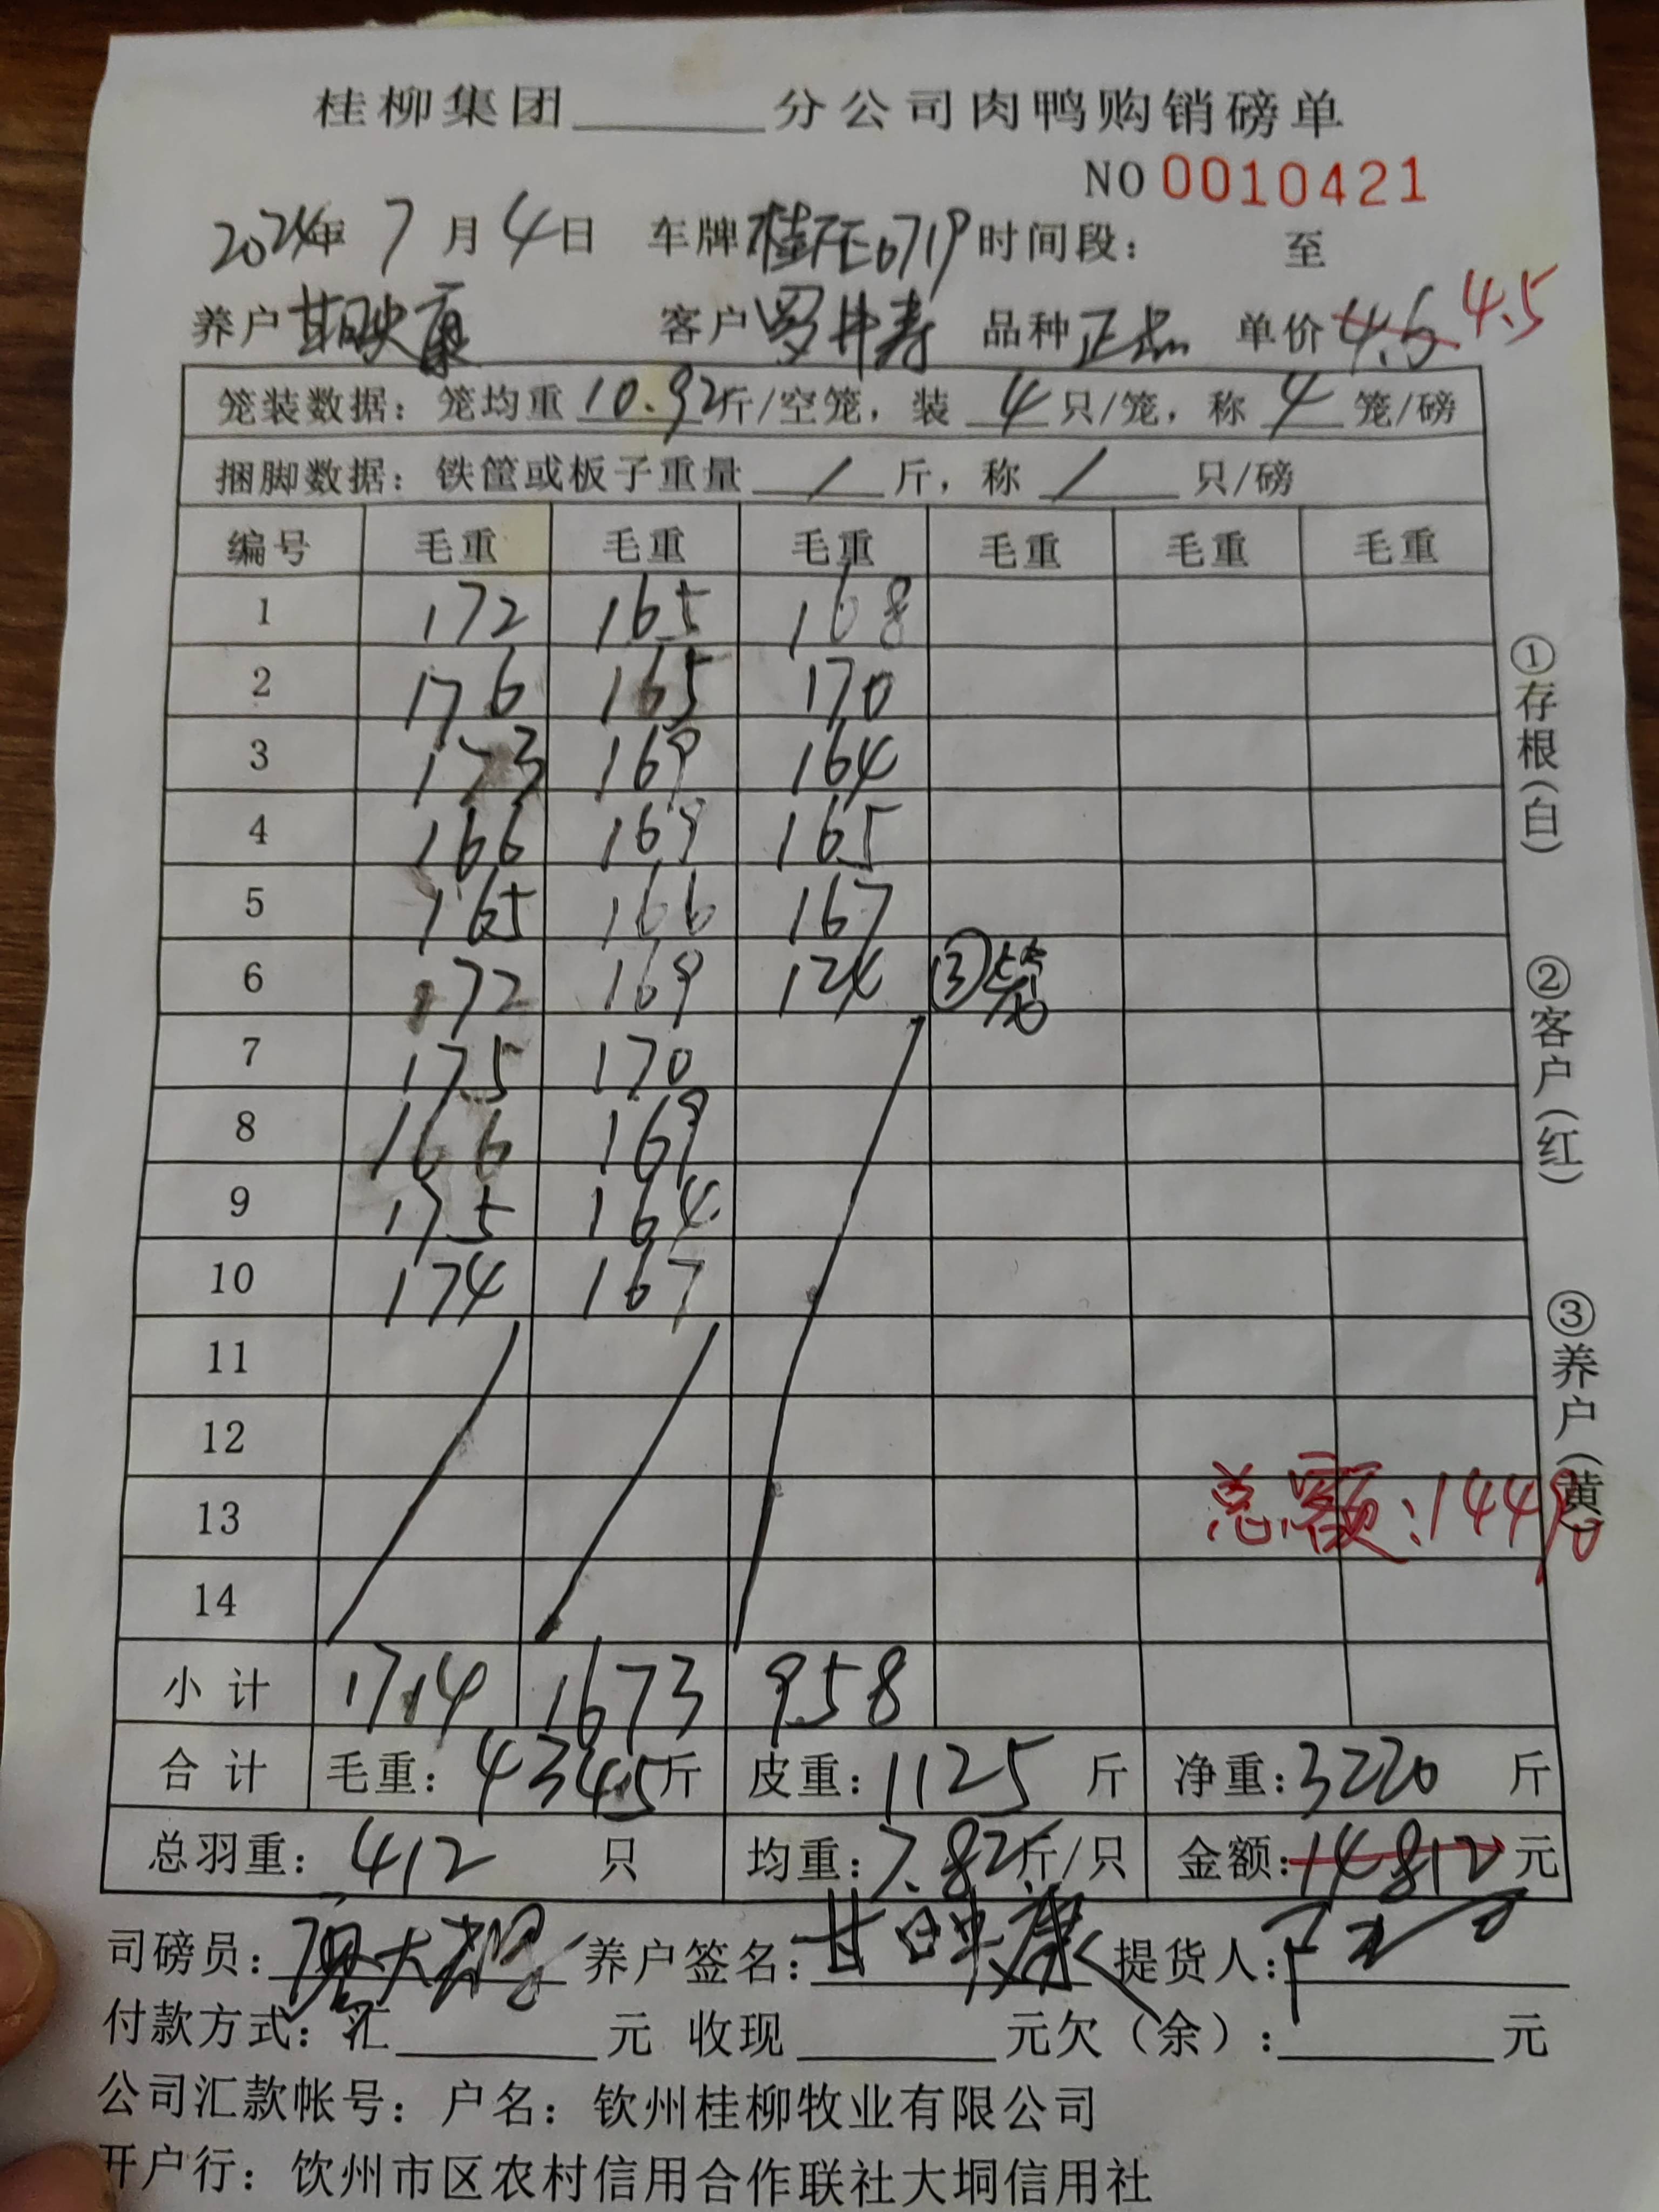 桂柳集团______分公司肉鸭购销磅单
NO 0010421
2024年 7 月 4 日 车牌 桂 6719 时间段: 至
养户 甘映康 客户 罗井寿 品种 正品 单价 4.6 4.5
笼装数据: 笼均重 10.92 斤/空笼, 装 4 只/笼, 称 4 笼/磅
捆脚数据: 铁筐或板子重量 / 斤, 称 / 只/磅
编号 毛重 毛重 毛重 毛重 毛重 毛重
1 172 165 168
2 176 165 170
3 173 169 164
4 166 169 165
5 165 166 167
6 172 169 124 ③笼
7 175 170
8 166 169
9 175 164
10 174 167
11
12
13 总额:14490
14
小计 1714 1673 958
合计 毛重: 4345 斤 皮重: 1125 斤 净重: 3220 斤
总羽重: 412 只 均重: 7.82 斤/只 金额: 14812 元
司磅员: 养户签名: 甘映康 提货人:
付款方式: 汇______元 收现______元欠(余):______元
公司汇款帐号: 户名: 钦州桂柳牧业有限公司
开户行: 饮州市区农村信用合作联社大垌信用社
①存根(白)
②客户(红)
③养户(黄)